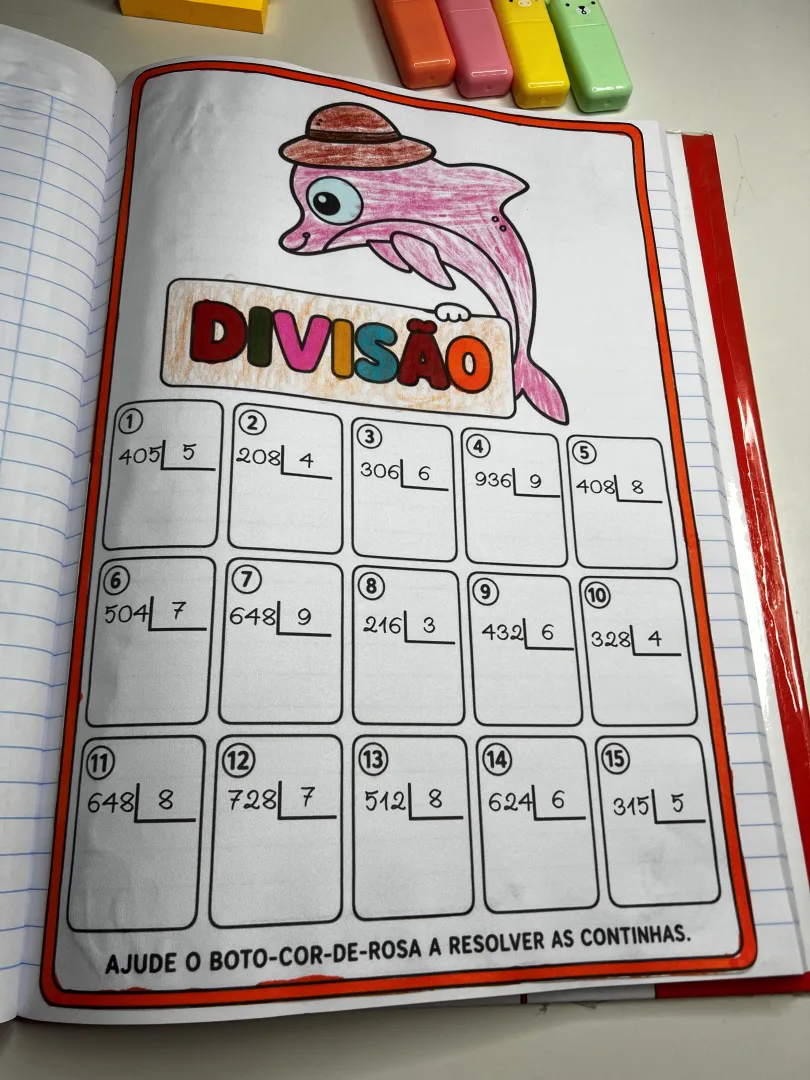 DIVISÃO
1 2 3 4 5
405 5 208 4 306 6 936 9 408 8
6 7 8 9 10
504 7 648 9 216 3 432 6 328 4
11 12 13 14 15
648 8 728 7 512 8 624 6 315 5
AJUDE O BOTO-COR-DE-ROSA A RESOLVER AS CONTINHAS.